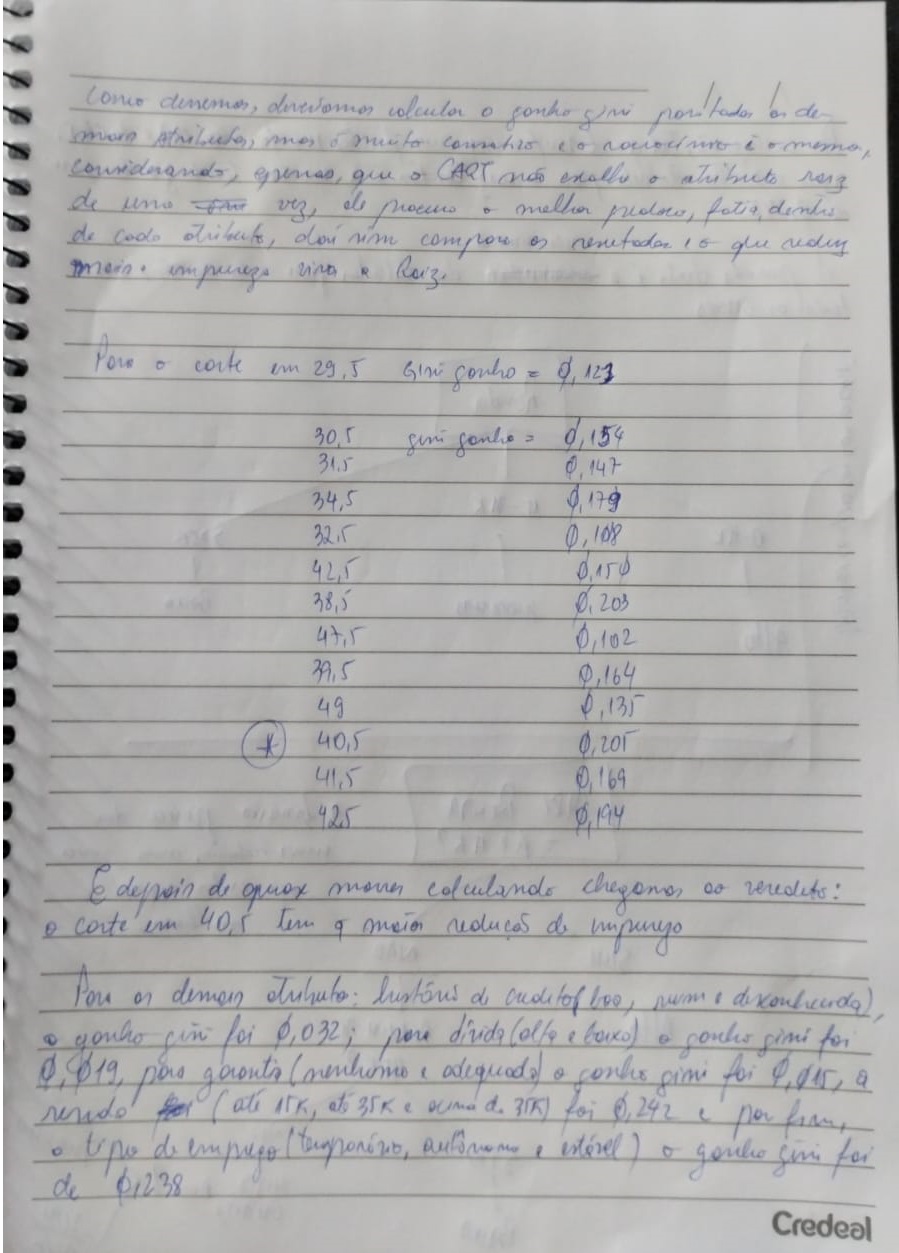 Como devemos, deveríamos calcular o ganho gini para todos os de-
mais atributos, mas é muito cansativo e o raciocínio é o mesmo,
considerando, apenas, que o CART não escolhe o atributo raiz
de uma vez, ele procura o melhor pedaço, fatia, dentro
de cada atributo, daí sim compara os resultados e o que reduz
mais a impureza vira a Raiz.
Para o corte em 29,5 Gini ganho = 0,123
30,5 gini ganho = 0,154
31,5 0,147
34,5 0,179
32,5 0,108
42,5 0,150
38,5 0,203
47,5 0,102
39,5 0,164
49 0,135
* 40,5 0,205
41,5 0,169
42,5 0,194
E depois de quase morrer calculando chegamos ao veredito:
o corte em 40,5 tem a maior redução de impureza
Para os demais atributo: história de credito(boa, ruim e desconhecida),
o ganho gini foi 0,032; para dívida (alta e baixa) o ganho gini foi
0,019, para garantia (nenhuma e adequada) o ganho gini foi 0,015, a
renda (até 15K, até 35K e acima de 35K) foi 0,242 e por fim,
o tipo de emprego (temporário, autônomo e estável) o ganho gini foi
de 0,238
Credeal